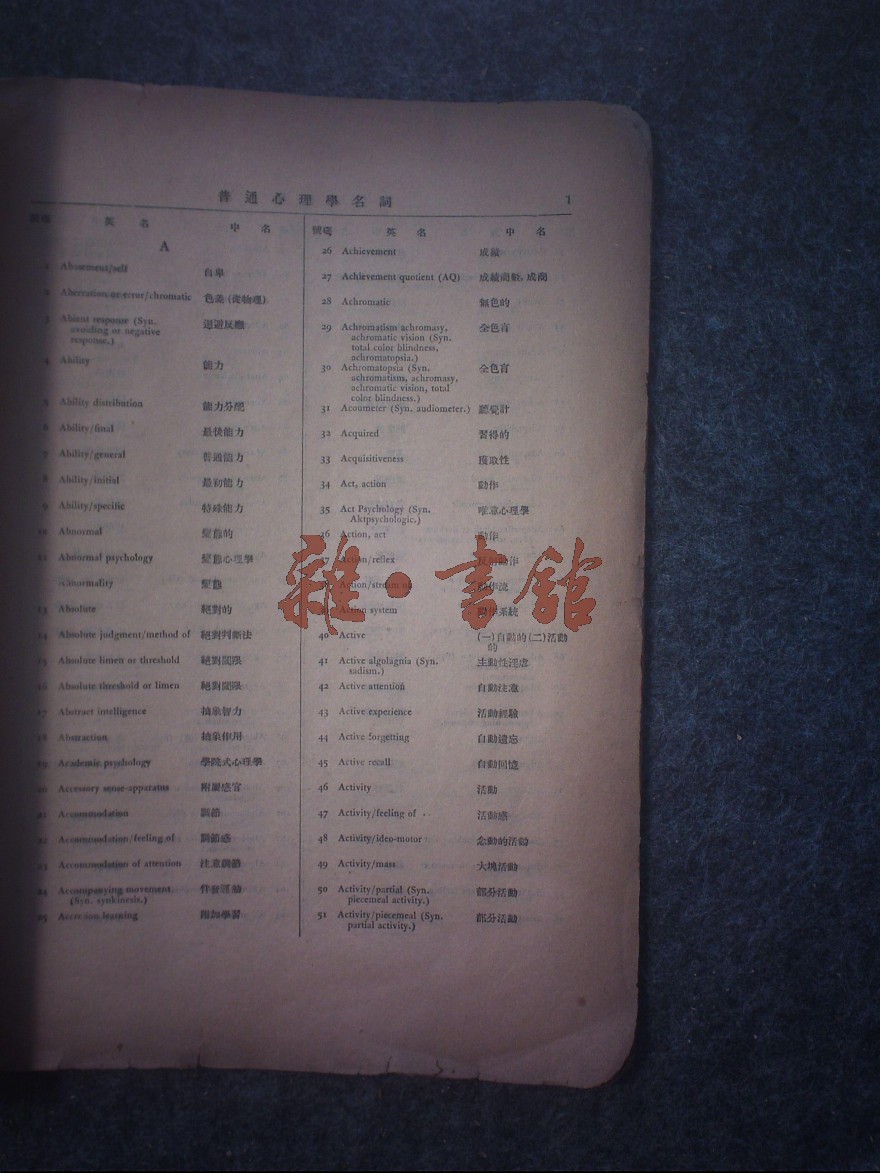 普通心理學名詞 1
號碼 英名 中名
A
1 Abasement/self 自卑
2 Aberration or error/chromatic 色差(從物理)
3 Abient response (Syn. 迴避反應
avoiding or negative
response.)
4 Ability 能力
5 Ability distribution 能力分配
6 Ability/final 最後能力
7 Ability/general 普通能力
8 Ability/initial 最初能力
9 Ability/specific 特殊能力
10 Abnormal 變態的
11 Abnormal psychology 變態心理學
Abnormality 變態
13 Absolute 絕對的
14 Absolute judgment/method of 絕對判斷法
15 Absolute limen or threshold 絕對閾限
16 Absolute threshold or limen 絕對閾限
17 Abstract intelligence 抽象智力
18 Abstraction 抽象作用
19 Academic psychology 學院式心理學
20 Accessory sense-apparatus 附屬感官
21 Accommodation 調節
22 Accommodation/feeling of 調節感
23 Accommodation of attention 注意調節
24 Accompanying movement 伴發運動
(Syn. synkinesis.)
25 Accretion learning 附加學習
號碼 英名 中名
26 Achievement 成績
27 Achievement quotient (AQ) 成績商數,成商
28 Achromatic 無色的
29 Achromatism achromasy, 全色盲
achromatic vision (Syn.
total color blindness,
achromatopsia.)
30 Achromatopsia (Syn. 全色盲
achromatism, achromasy,
achromatic vision, total
color blindness.)
31 Acoumeter (Syn. audiometer.) 聽覺計
32 Acquired 習得的
33 Acquisitiveness 獲取性
34 Act, action 動作
35 Act Psychology (Syn. 唯意心理學
Aktpsychologic.)
36 Action, act 動作
37 Action/reflex 反射動作
Action/stream of 動作流
Action system 動作系統
40 Active (一)自動的(二)活動
的
41 Active algolagnia (Syn. 主動性淫虐
sadism.)
42 Active attention 自動注意
43 Active experience 活動經驗
44 Active forgetting 自動遺忘
45 Active recall 自動回憶
46 Activity 活動
47 Activity/feeling of 活動感
48 Activity/ideo-motor 念動的活動
49 Activity/mass 大塊活動
50 Activity/partial (Syn. 部分活動
piecemeal activity.)
51 Activity/piecemeal (Syn. 部分活動
partial activity.)
雜·書館